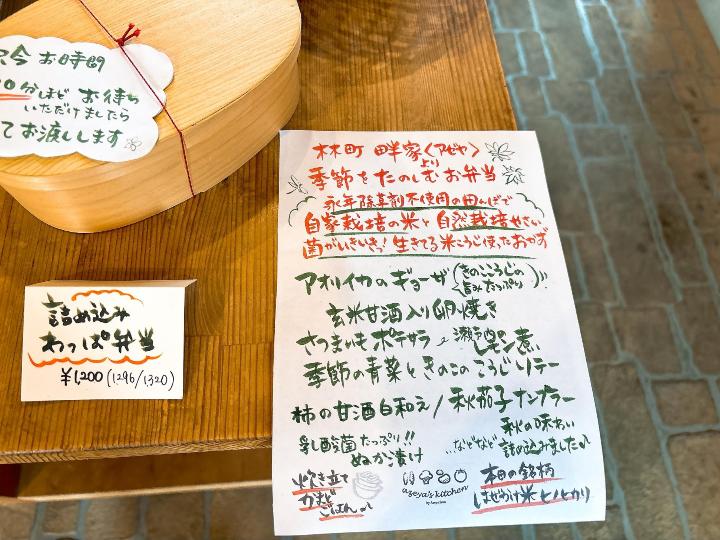 只今 お時間
10分ほど お待ち
いただけましたら
てお渡しします
詰め込み
わっぱ弁当
¥1,200 (1296/1320)
林町 畔家〈アゼヤ〉
より
季節をたのしむお弁当
永年除草剤不使用の田んぼで
自家栽培の米と自然栽培やさい
菌がいきいきっ!生きてる米こうじ使ったおかず
アオリイカのギョーザ(きのここうじの旨みたっぷり)!!
玄米甘酒入り卵焼き
さつまいもポテサラ 瀬戸内のレモン煮
季節の青菜ときのこのこうじソテー
柿の甘酒白和え/秋茄子ナンプラー
乳酸菌たっぷり!!
ぬか漬け
...などなど 秋の味わい
詰め込みました♪
炊き立て
かまど
ごはん♪
azeya's kitchen
本日の銘柄
はぜかけ米ヒノヒカリ